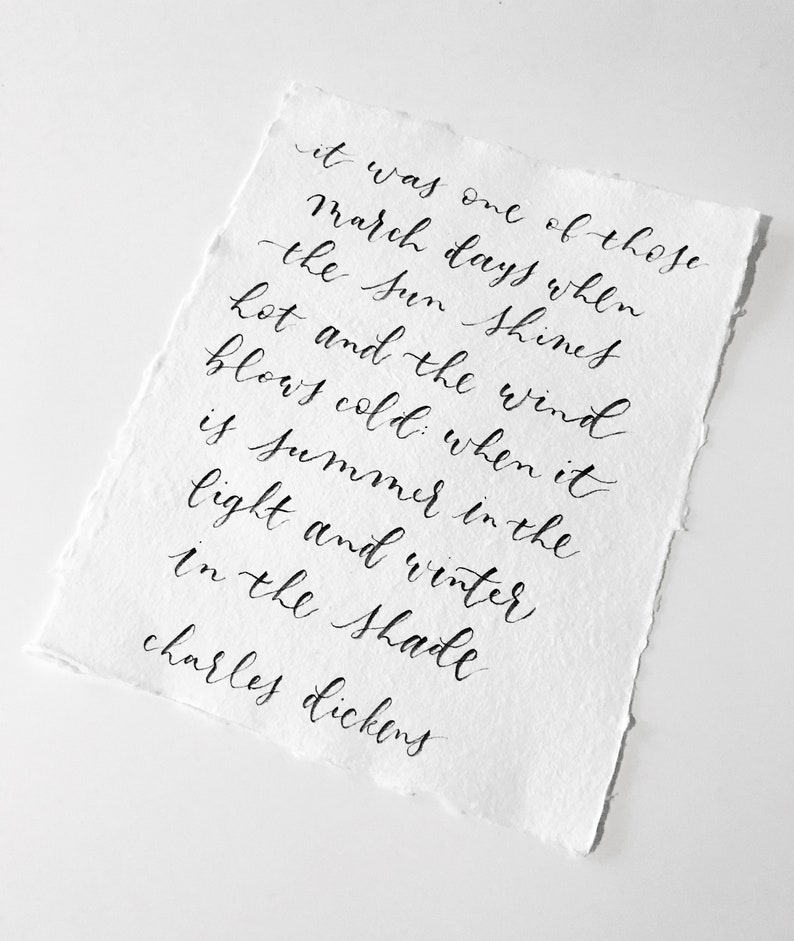 it was one of those
march days when
the sun shines
hot and the wind
blows cold: when it
is summer in the
light and winter
in the shade
charles dickens